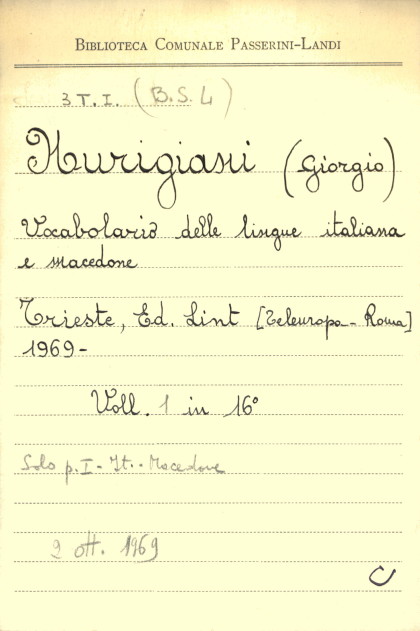 BIBLIOTECA COMUNALE PASSERINI-LANDI
3 T. I. (B.S. 4)
Nurigiani (Giorgio)
Vocabolario delle lingue italiana
e macedone
Trieste, Ed. Lint [Teleuropa - Roma]
1969-
Voll. 1 in 16°
Solo p. I - It. - Macedone
2 ott. 1969
C